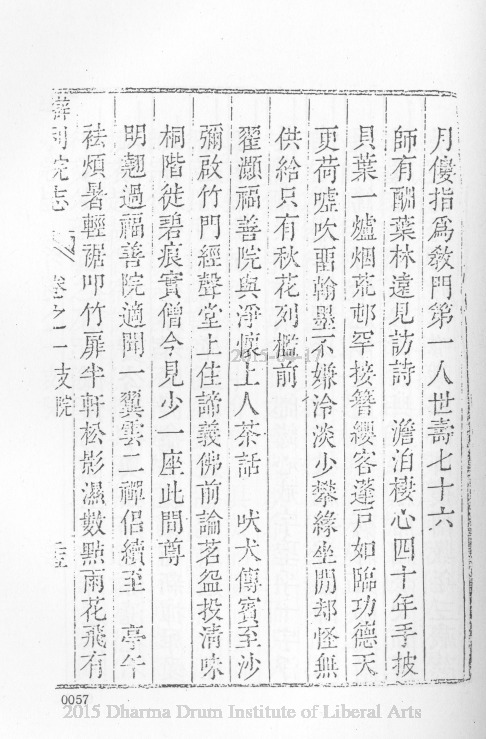 月儍指爲敎門第一人世壽七十六
師有酬葉林遠見訪詩　澹泊棲心四十年手披
貝葉一爐烟荒邨罕接簪纓客蓬戸如臨功德天
更荷噓吹畱翰墨不嫌冷淡少攀緣坐閒却怪無
供給只有秋花列檻前
翟灝福善院與淨懷上人茶話　吠犬傳賓至沙
彌啟竹門經聲堂上住諦義佛前論茗盌投淸味
桐階徙碧痕實僧今見少一座此間尊
明翹過福善院適聞一翼雲二禪侶續至　亭午
祛煩暑輕裾叩竹扉半軒松影濕數點雨花飛有
辯利院志　卷之一　支院
0057
2015 Dharma Drum Institute of Liberal Arts